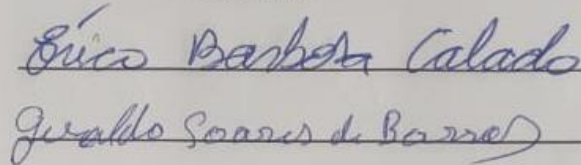 Érico Barbosa Calado
Geraldo Soares de Barros